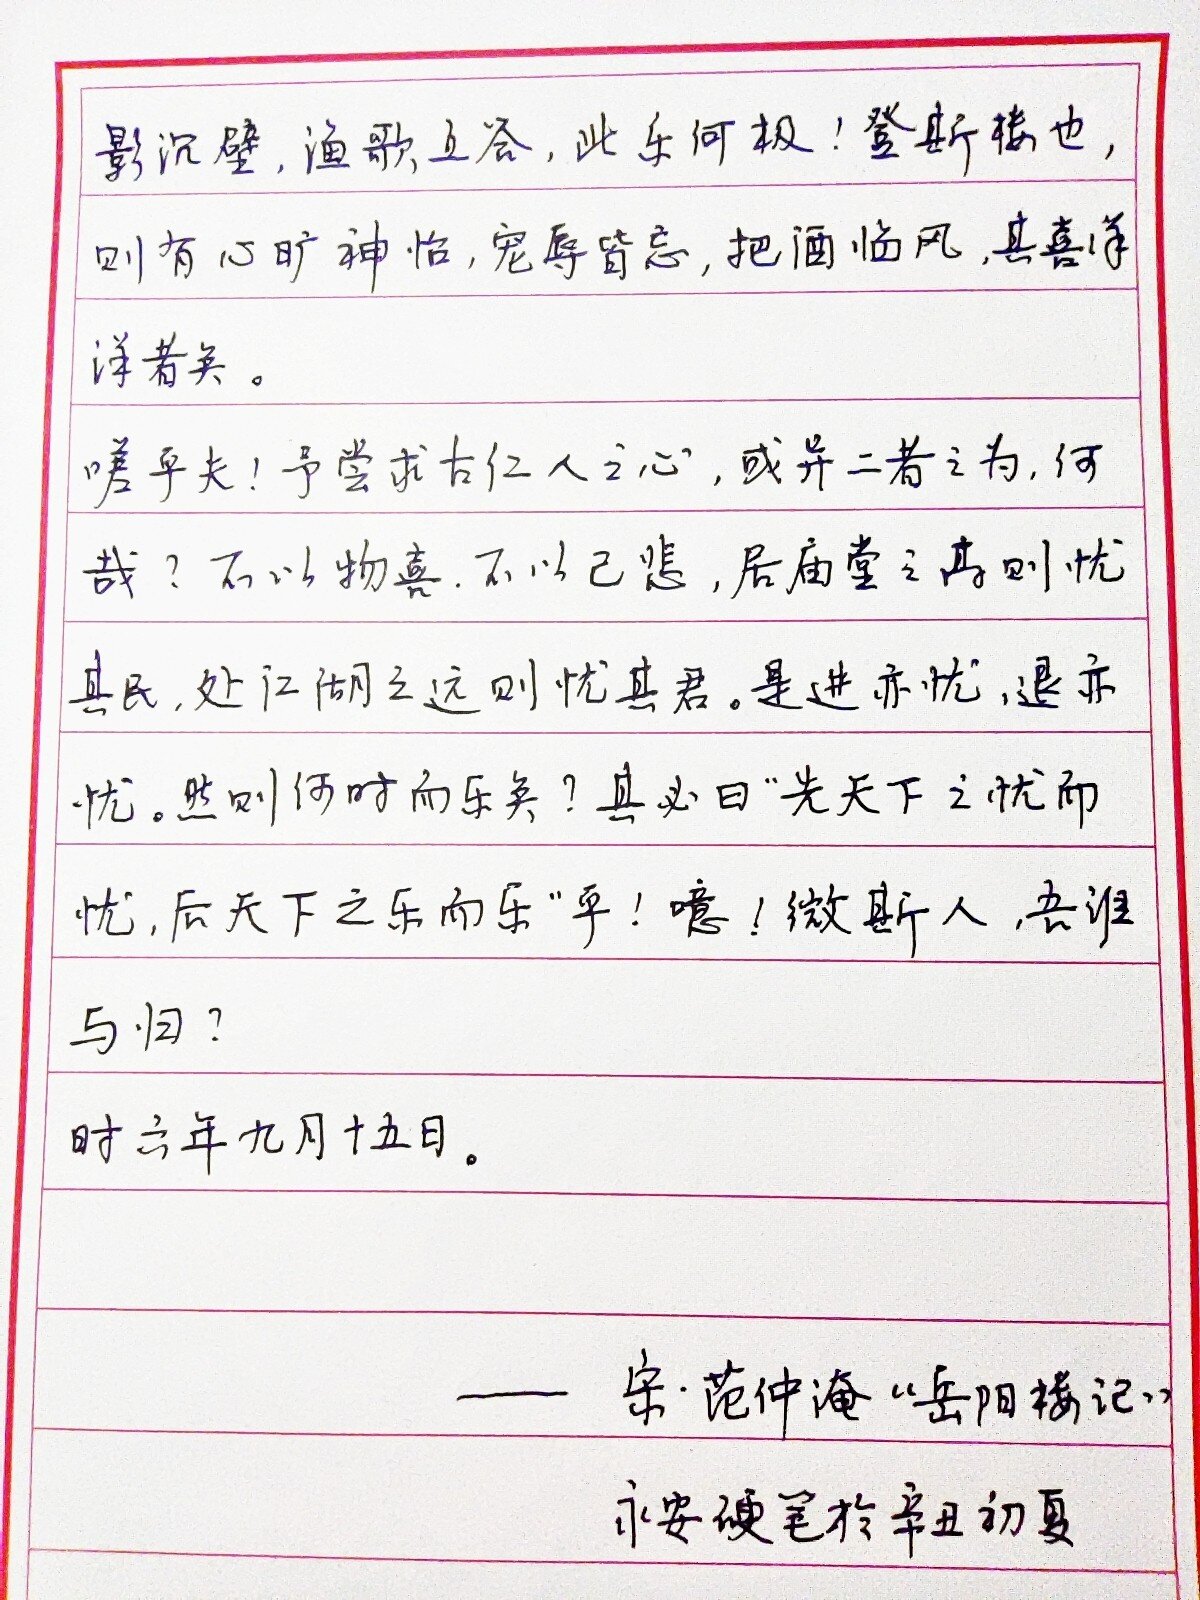 影沉璧，渔歌互答，此乐何极！登斯楼也，
则有心旷神怡，宠辱皆忘，把酒临风，其喜洋
洋者矣。
嗟乎夫！予尝求古仁人之心，或异二者之为，何
哉？不以物喜．不以己悲，居庙堂之高则忧
其民，处江湖之远则忧其君。是进亦忧，退亦
忧。然则何时而乐矣？其必曰“先天下之忧而
忧，后天下之乐而乐”乎！噫！微斯人，吾谁
与归？
时六年九月十五日。
—— 宋·范仲淹“岳阳楼记”
永安硬笔於辛丑初夏